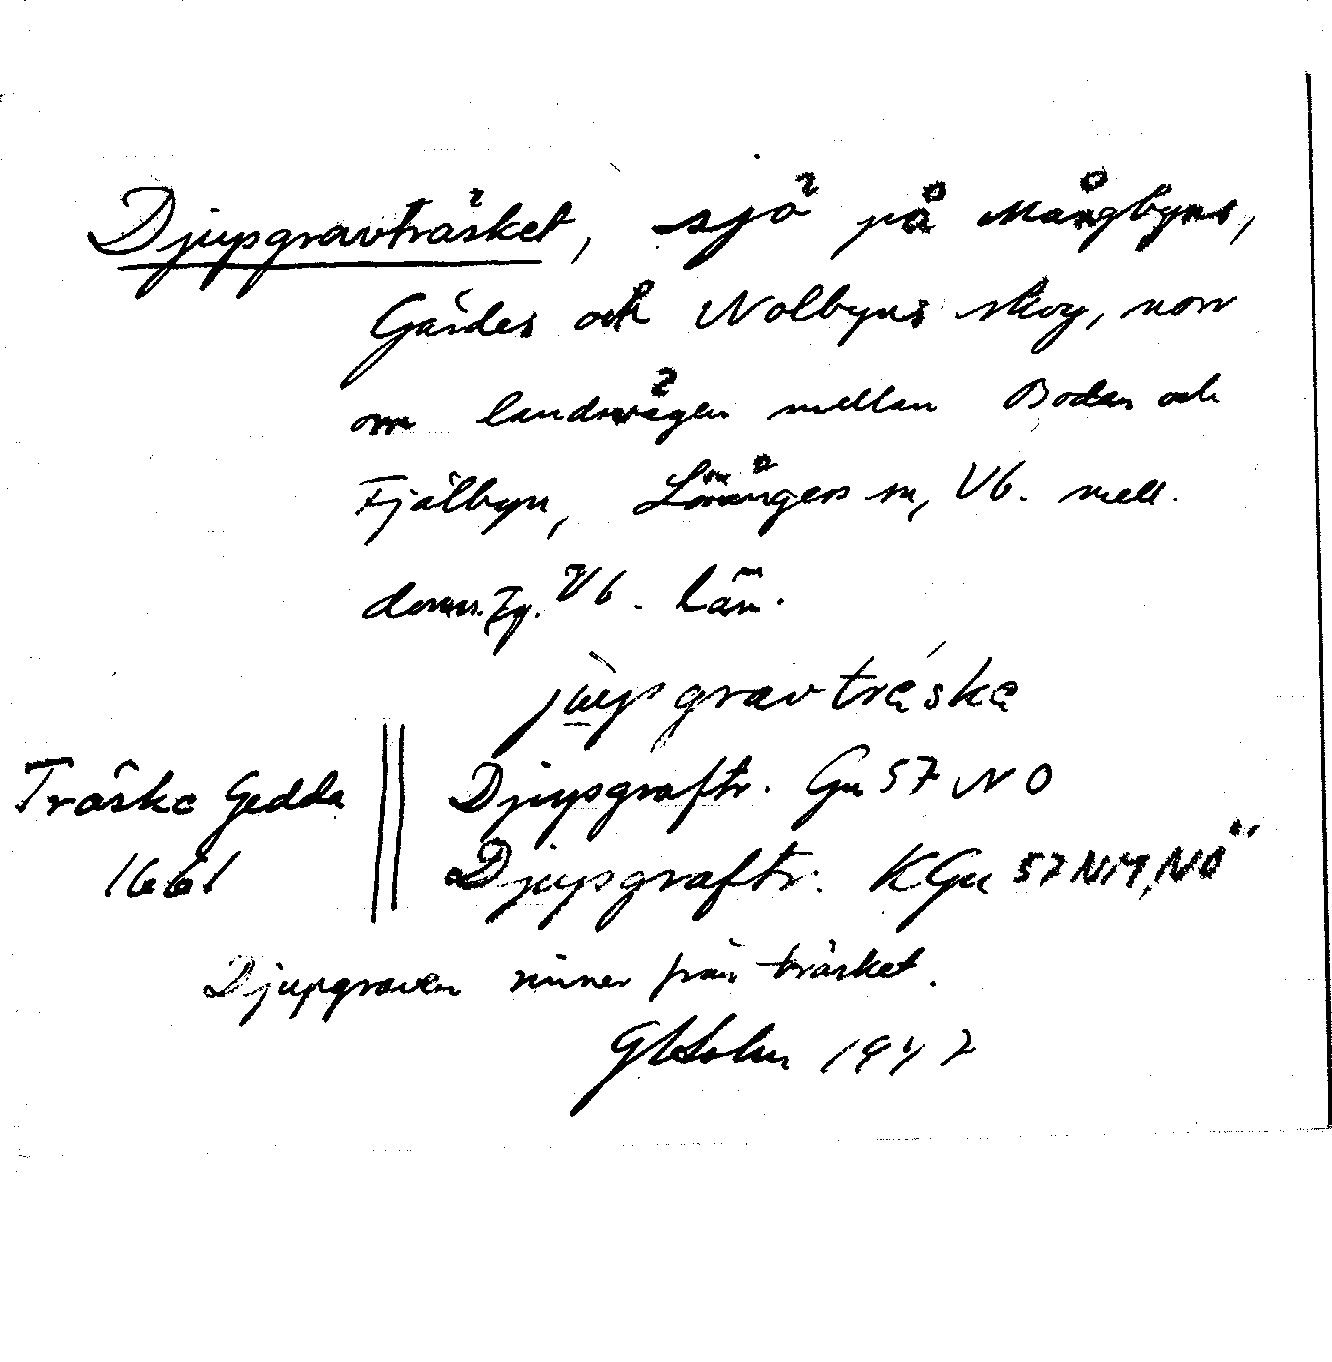 Djupgravträsket, sjö på Mångbyns,
Gärdes och Nolbyns skog, norr
om landsvägen mellan Bodan och
Fjälbyn, Lövångers sn, Vb. mell.
doms.fg. Vb. län.
gravträska
Träske Gedda
1661
Djupgraftr. Gu 57 NO
Djupgraftr. KGu 57 NV, NÖ
Djupgraven rinner från träsket.
1947